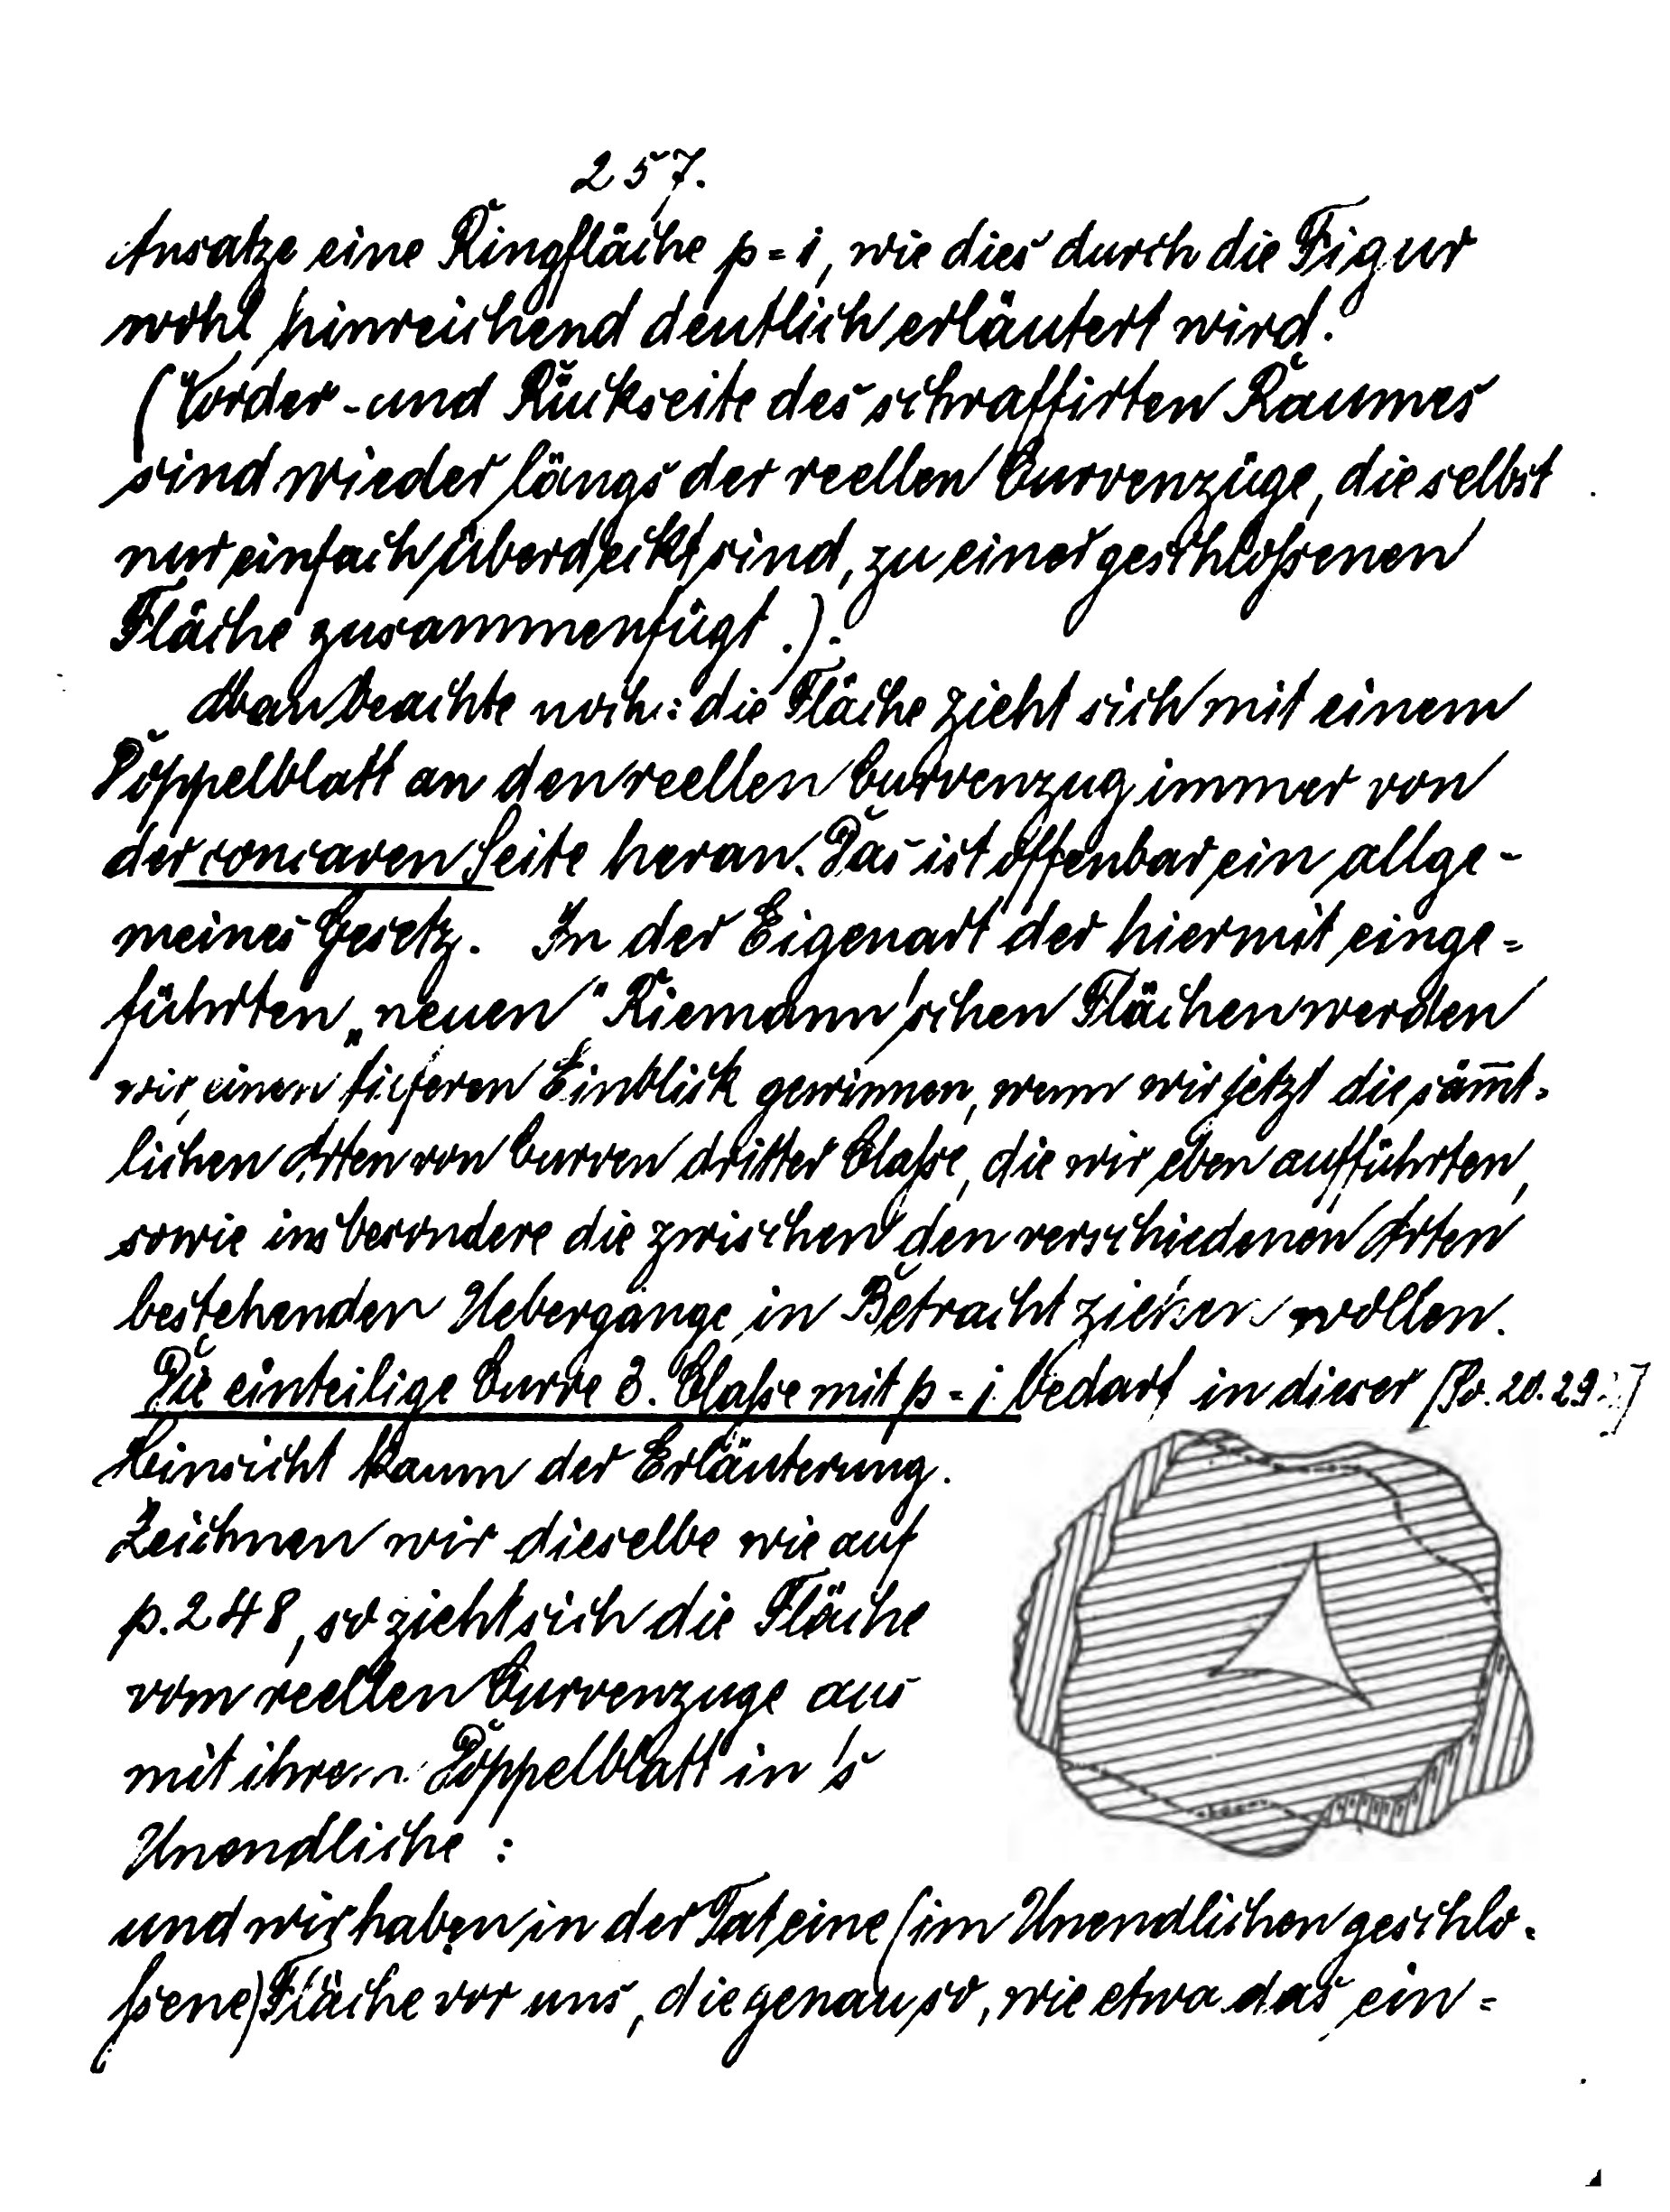 257.
Ansatze eine Ringfläche p = 1, wie dies durch die Figur
wohl hinreichend deutlich erläutert wird.
(Vorder- und Rückseite des schraffirten Raumes
sind wieder längs der reellen Curvenzüge, die selbst
nur einfach überdeckt sind, zu einer geschloßenen
Fläche zusammenfügt.).
Man beachte noch: die Fläche zieht sich mit einem
Doppelblatt an den reellen Curvenzug immer von
der concaven Seite heran. Das ist offenbar ein allge-
meines Gesetz. In der Eigenart der hiermit einge-
führten „neuen" Riemann'schen Flächen werden
wir einen tieferen Einblick gewinnen, wenn wir jetzt die säm̅t-
lichen Arten von Curven dritter Claße, die wir eben aufführten,
sowie insbesondere die zwischen den verschiedenen Arten
bestehenden Uebergänge in Betracht ziehen wollen.
Die einteilige Curve 3. Claße mit p = 1 bedarf in dieser
Hinsicht kaum der Erläuterung.
Zeichnen wir dieselbe wie auf
p. 248, so zieht sich die Fläche
vom reellen Curvenzuge aus
mit ihrem Doppelblatt in's
Unendliche:
und wir haben in der Tat eine (im Unendlichen geschlo-
ßene) Fläche vor uns, die genau so, wie etwa das ein-